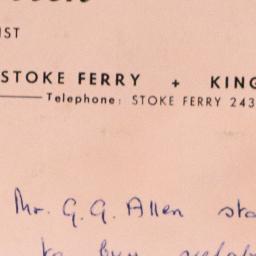 IST
STOKE FERRY + KING
Telephone: STOKE FERRY 243
Mr. G. G. Allen sta
to buy